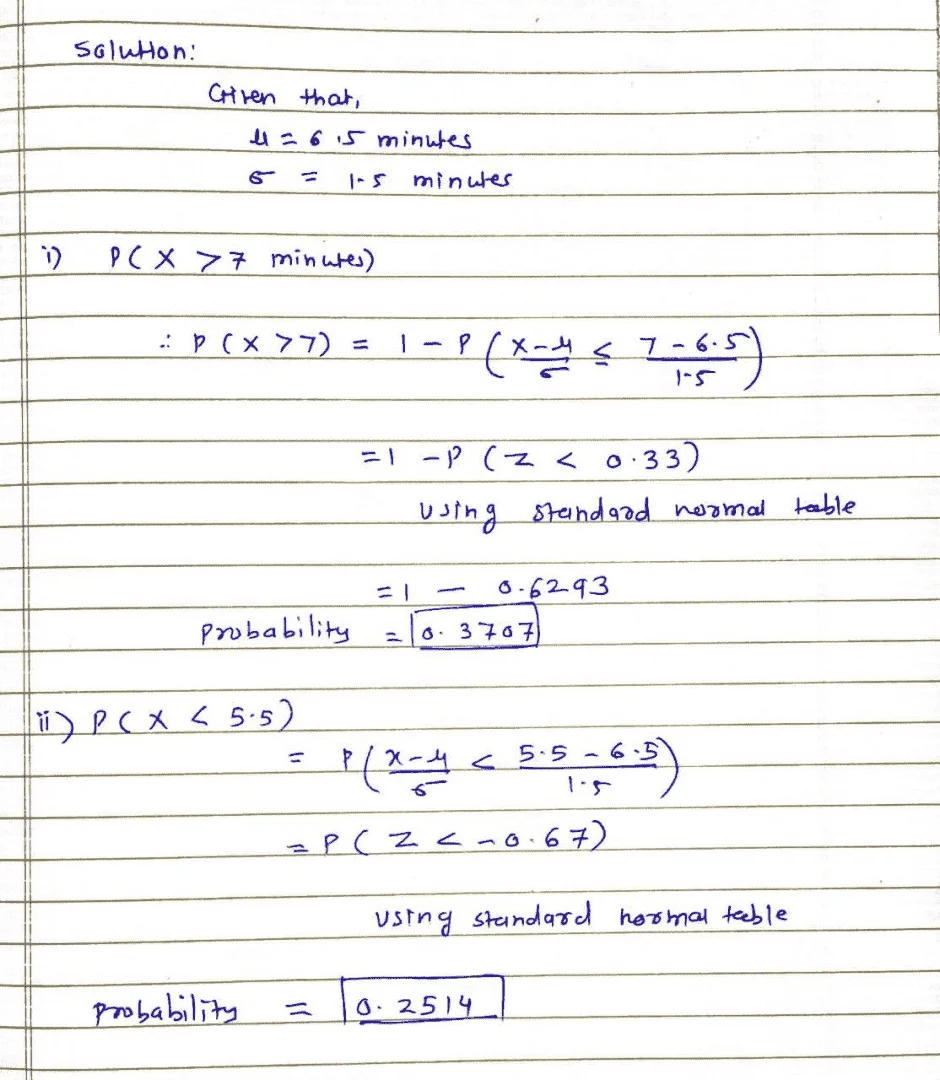 Solution:
Given that,
μ = 6.5 minutes
σ = 1.5 minutes
i) P(X > 7 minutes)
∴ P(X > 7) = 1 - P((X-μ)/σ ≤ (7-6.5)/1.5)
= 1 - P(Z < 0.33)
Using standard normal table
= 1 - 0.6293
Probability = 0.3707
ii) P(X < 5.5)
= P((x-μ)/σ < (5.5-6.5)/1.5)
= P(Z < -0.67)
Using standard normal table
Probability = 0.2514